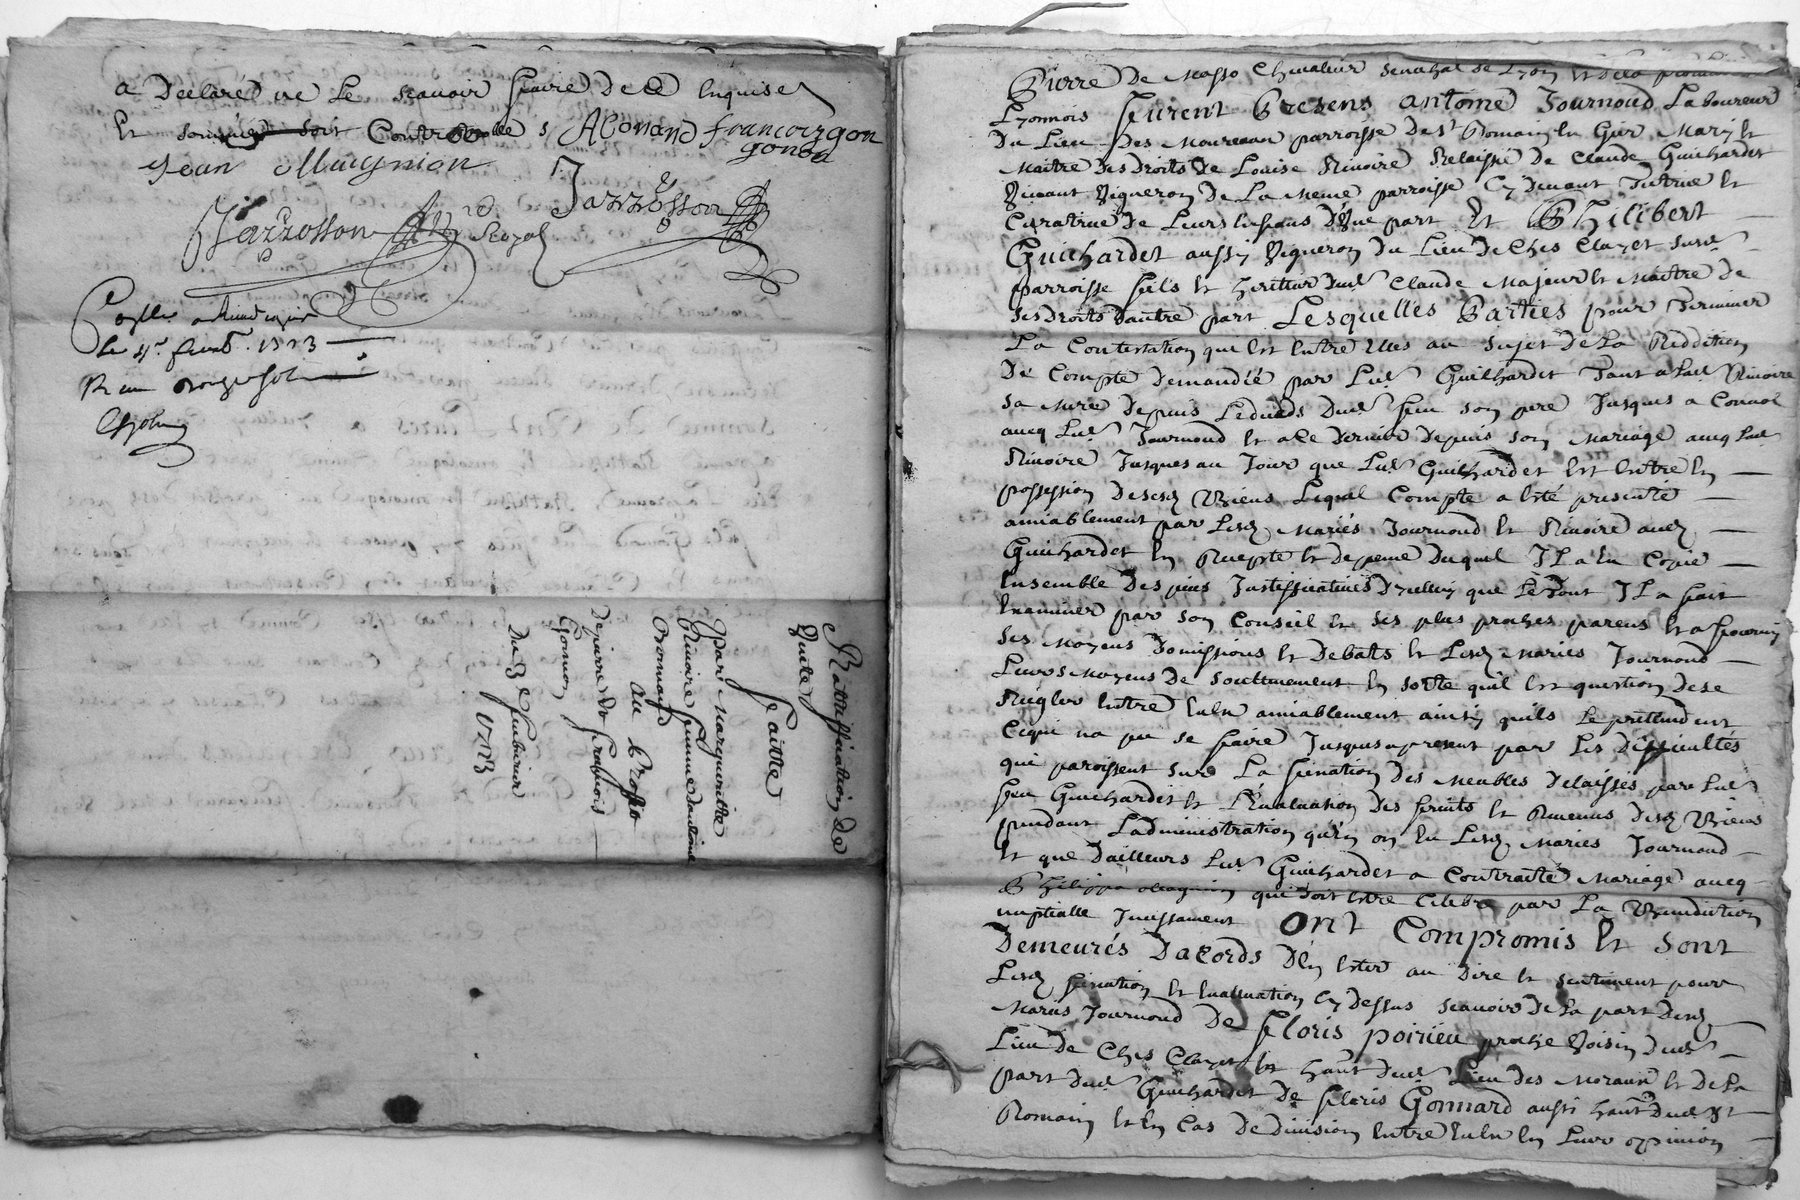 a Declaré ne le scavoir faire de ce enquise
et sommée soit Controollé s ABonand francois gon
gonon
Jean Magnien
Jarrosson Jarrosson
no.re Royal
Conllé a
le 4e fevr. 1723
R un
Rattiffication de
quitte
faitte
par margueritte
Rivoire femme dantoine
Bonnand
au proffit
de pierre et francois
Gonon
Du 3e fevbrier
1723
Pierre de Masso Chevalier senechal de Lyon et de la province
Lyonnois furent Presens antoine Journoud Laboureur
du Lieu des Moureaux parroisse de st Romain en Gier Mary et
Maitre des droits de Louise Rivoire Relaissée de Claude Guichardet
vivant vigneron de La meme parroisse Cy devant Tutrice et
Curatrice de Leurs enfans d'une part Et Philibert
Guichardet aussy vigneron du Lieu de Ches Clozet susd.
parroisse fils et heritier dud. Claude Majeur et Maitre de
ses droits d'autre part Lesquelles Parties pour Terminer
La Contestation qui est entre Elles au sujet de La Reddition
de Compte demandée par Led. Guichardet Tant a Lad. Rivoire
sa mere depuis Le deceds dud. feu son pere Jusques a Convol
aveq Led. Journoud et a Ce dernier depuis son mariage aveq Lad.
Rivoire Jusques au Jour que Led. Guichardet est entré en
possession de sesd. Biens Lequel Compte a esté presenté
amiablement par Lesd. Mariés Journoud et Rivoire aud.
Guichardet en Recepte et depence duquel JL a eu Copie
ensemble des pieces Justifficatives d'icelluy que Le tout JL a fait
Examiner par son Conseil et ses plus proches parens et a fourny
ses moyens d'omissions et debats et Lesd. Mariés Journoud
Leurs moyens de souttenement en sorte qu'il est question de se
Regler entre Eux amiablement ainsy qu'ils Le prettendent
Ce qui na pu se faire Jusques a present par Les difficultés
qui paroissent sur La fixation des meubles delaissés par Led.
feu Guichardet et L'Evaluation des fruits et Revenus desd. Biens
pendant Ladministration qu'en ont Eu Lesd. Mariés Journoud
et que d'ailleurs Led. Guichardet a Contracté Mariage aveq
Philippa Magnien qui doit estre Celebré par La Benediction
nuptialle Incessament Ont Compromis et sont
Demeurés Dacords D'en ester au dire et sentiment pour
Lesd. fixation et Evaluation Cy dessus scavoir de La part desd.
Mariés Journoud De floris poirieu proche voisin dud.
Lieu de Ches Clozet et hant dud. Lieu des Moraux et de La
part dud. Guichardet De floris Gonnard aussi hant dud. st
Romain et en Cas de division entre Eux en Leur opinion